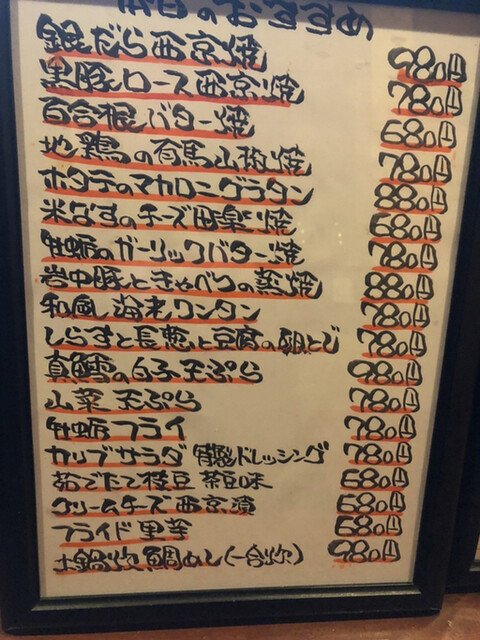 本日のおすすめ
銀だら西京焼 980円
黒豚ロース西京焼 780円
百合根バター焼 680円
地鶏の有馬山椒焼 780円
ホタテのマカロニグラタン 880円
米なすのチーズ田楽焼 680円
牡蛎のガーリックバター焼 780円
岩中豚ときゃべつの蒸焼 880円
和風海老ワンタン 780円
しらすと長葱と豆腐の卵とじ 780円
真鱈の白子天ぷら 980円
山菜天ぷら 780円
牡蛎フライ 780円
カリブサラダ 特製ドレッシング 780円
茹でたて枝豆 茶豆味 680円
クリームチーズ西京漬 680円
フライド里芋 680円
土鍋炊鯛めし(一合炊) 980円